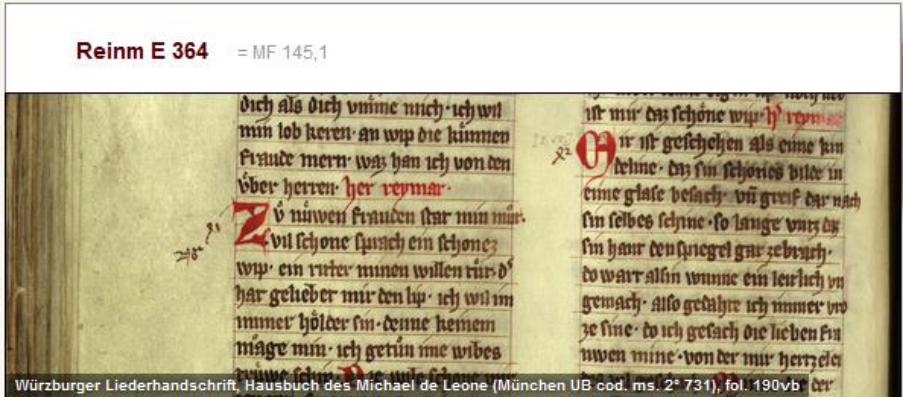 Reinm E 364 = MF 145,1
dich als dich vnͥme mich · ich wil
min lob keren · an wip die kͤunnen
fraude mern · waz han ich von den
v̈ber herren · her reymar ·
Zv̊ nuwen frauden stat min mů̊t
vil schone sprach ein schonez
wip · ein ritter minen willen tůt · dˢ
hat gelieber mir den lip · ich wil im
immer hölder sin · denne keinem
mage min · ich getůn ime wibes
ist mir daz schöne wip · hˢ reymar
Mir ist geschehen als eime kin
deline · daz sin schönes bilde in
eime glase besach · vn̄ greif dar nach
sin selbes schine · so lange vntz daz
sin hant den spiegel gar zebrach ·
do wart alsin wunne ein leitlich vn
gemach · also gedahte ich immer vro
ze sine · do ich gesach die lieben fra
uwen mine · von der mir hertzelei
Würzburger Liederhandschrift, Hausbuch des Michael de Leone (München UB cod. ms. 2° 731), fol. 190vb